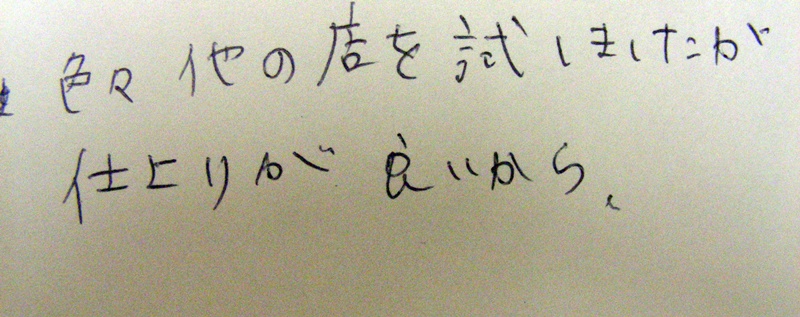 色々他の店を試しましたが
仕上りが良いから、